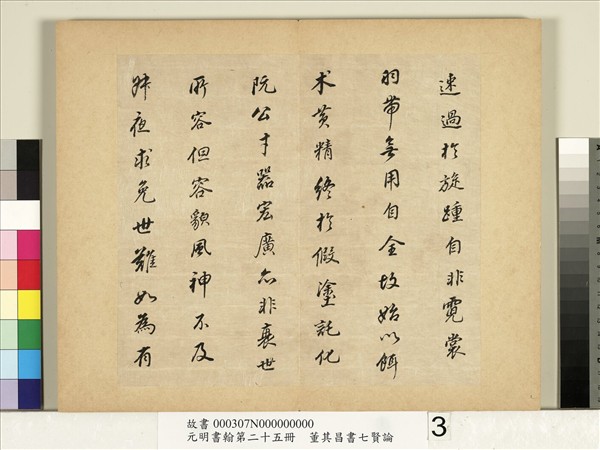 速過於旋踵自非霓裳
羽帶無用自全故始以餌
术黃精終於假塗託化
阮公才器宏廣亦非衰世
所容但容貌風神不及
叔夜求免世難如為有
故書 000307N000000000
元明書翰第二十五冊　董其昌書七賢論
3